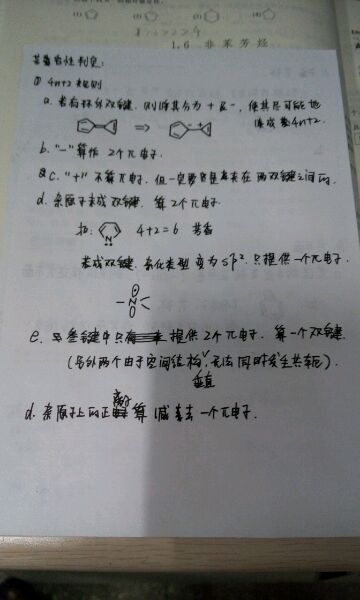 1.6 非苯芳烃
芳香性判定:
① 4n+2 规则
a. 若有环外双键, 则将其分为 + 及 -, 使其尽可能地
满足 4n+2.
⇒
b. "-" 算作 2个π电子.
c. "+" 不算π电子, 但一定要夹在两双键之间
d. 杂原子未成双键, 算 2个π电子.
如: N 4+2=6 芳香
未成双键, 杂化类型变为 sp². 只提供一个π电子.
N
e. 叁键中只有 提供 2个π电子. 算一个双键.
(另外两个由于空间结构垂直, 无法同时发生共轭).
d. 杂原子上的正离子算减去一个π电子.